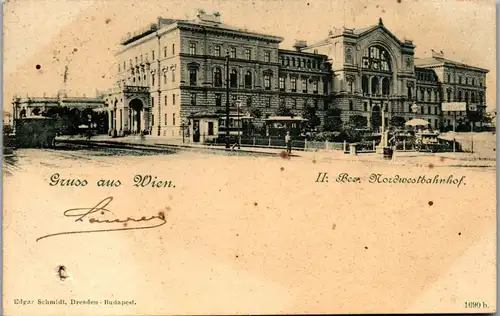 Gruss aus Wien.
II: Bez. Nordwestbahnhof.
Edgar Schmidt, Dresden - Budapest.
1090 b.